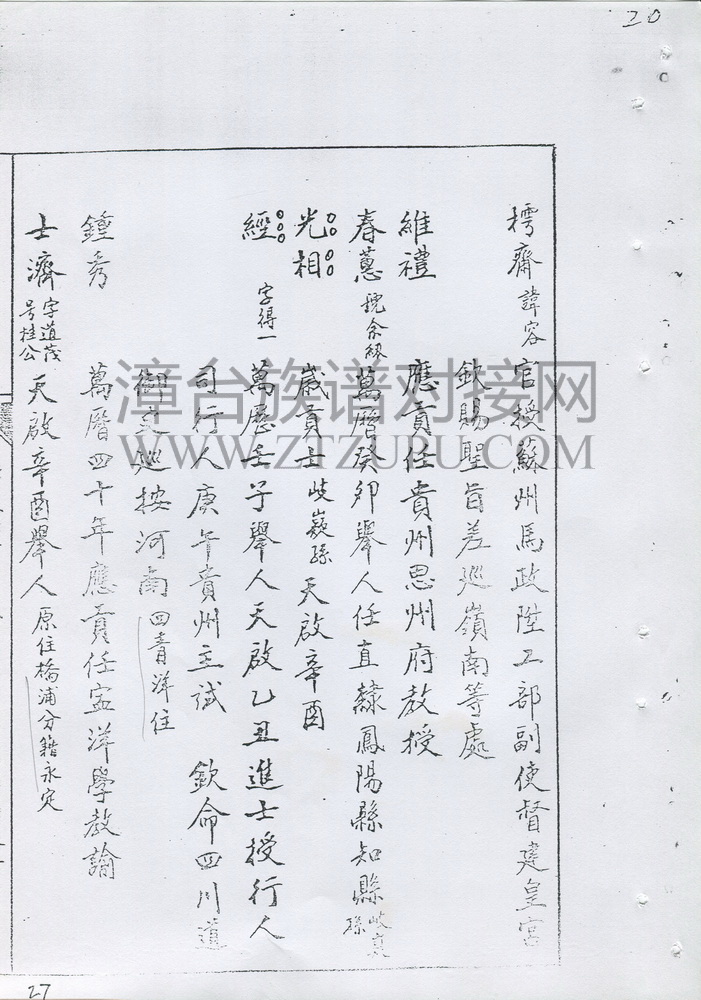 20
樗齋 諱容 官授蘇州馬政陞工部副使督建皇宮
欽賜聖旨差巡嶺南等處
維禮 應貢任貴州思州府教授
春蕙 號余繆 萬曆癸卯舉人任直隸鳳陽縣知縣 岐襄孫
光相 歲貢士 岐嶷孫 天啟辛酉
經 字得一 萬曆壬子舉人天啟乙丑進士授行人
司行人庚午貴州主試 欽命四川道
御史巡按河南 四青洋住
鍾秀 萬曆四十年應貢任寍洋學教諭
士濟 字道茂 号桂公 天啟辛酉舉人 原住橋浦分籍永定
27
漳台族谱对接网
WWW.ZTZUPU.COM